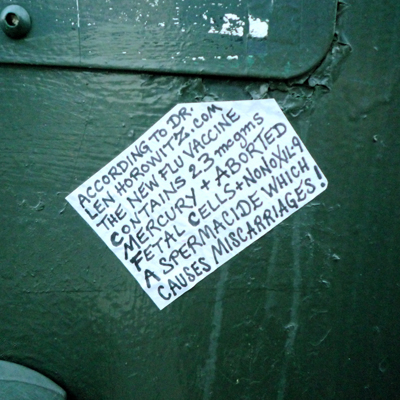 ACCORDING TO DR.
LEN HOROWITZ.COM
THE NEW FLU VACCINE
CONTAINS 23 mcgms
MERCURY + ABORTED
FETAL CELLS + NONOXYL-9
A SPERMACIDE WHICH
CAUSES MISCARRIAGES!